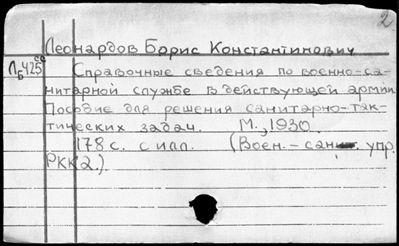 2
Леонардов Борис Константинович
Л Б 425 сс
Справочные сведения по военно-са-
нитарной службе в действующей армии
Пособие для решения санитарно-так-
тических задач. М., 1930.
178 с. с илл. (Воен.-сан. упр.
РККА.).